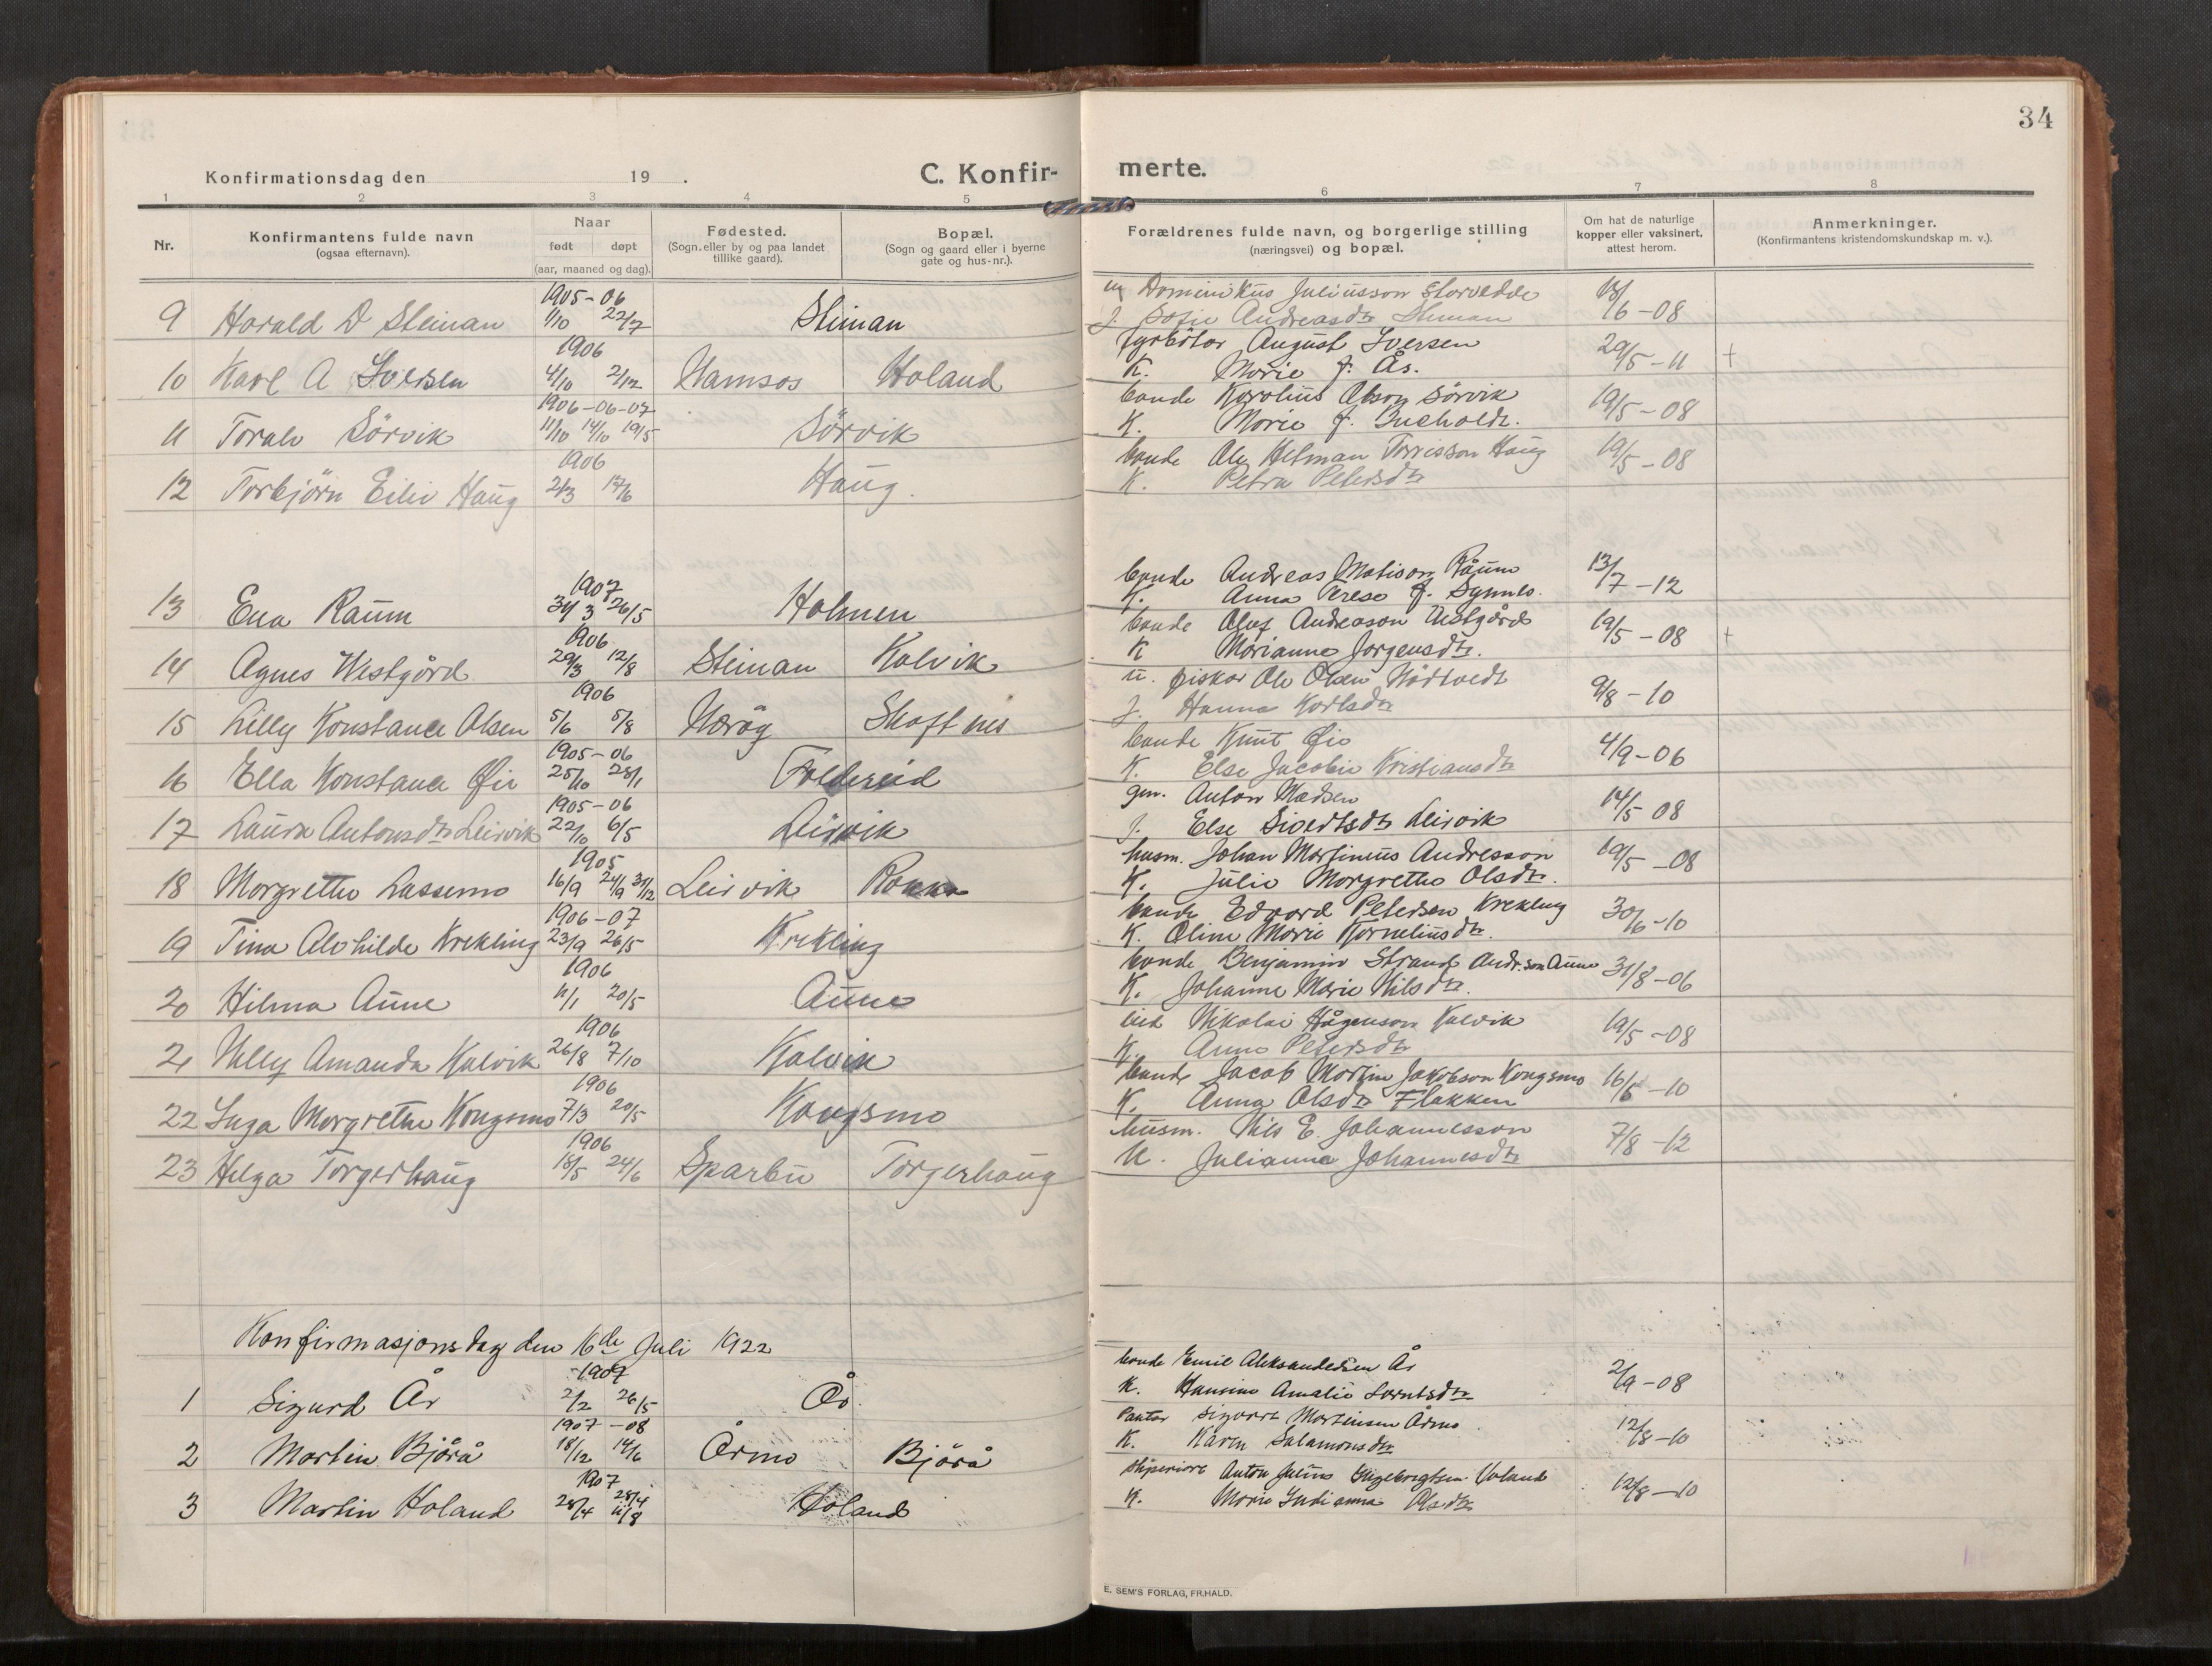 34
Konfirmationsdag den 19 .
C. Konfir-
merte.
1 2 3 4 5 6 7 8
Nr.
Konfirmantens fulde navn
(ogsaa efternavn).
Naar
født døpt
(aar, maaned og dag).
Fødested.
(Sogn eller by og paa landet
tillike gaard).
Bopæl.
(Sogn og gaard eller i byerne
gate og hus-nr.).
Forældrenes fulde navn, og borgerlige stilling
(næringsvei) og bopæl.
Om hat de naturlige
kopper eller vaksinert,
attest herom.
Anmerkninger.
(Konfirmantens kristendomskundskap m. v.).
1905-06 Dominikus Juliusson
9 Harald D Steinan 1/10 22/7 Steinan J. Sofie Andreasdtr Steinan 6-08
1906 fyrbøtar August Iversen
10 Karl A Iversen 4/10 2/12 Namsos Holand K. Marie f. Ås. 29/5-11 +
1906-06-07 bonde Karolius Olsen Sörvik
11 Toralv Sörvik 11/10 14/10 19/5 Sörvik K. Marie f. 19/5-08
1906 bonde Ole Hetman Torrisson Haug
12 Torbjörn Eiliv Haug 2/3 17/6 Haug. K. Petra Petersdtr 19/5-08
1907 bonde Andreas Matison Raum
13 Ena Raum 31/3 26/5 Holmen K. Anna Terese f. 13/7-12
1906 bonde Oluf Andreason Vestgård
14 Agnes Westgård 29/3 12/8 Steinan Kalvik K Marianne Jorgensdtr. 19/5-08 +
1906 u. fisker Ole Olsen Nödtvedt
15 Lilly Konstance Olsen 5/6 5/8 Nærøy Skaftnes J. Hanna Karlsdtr 9/8-10
1905-06 bonde Knut Øie
16 Ella Konstance Øie 25/10 28/1 Foldereid K. Else Jacobie Kristiansdtr 4/9-06
1905-06 gm. Anton Madsen
17 Laura Antonsdtr Leirvik 22/10 6/5 Leirvik J. Else Sivertsdtr Leirvik 14/5 08
1905 husm. Johan Martinius Andresson
18 Margrethe Lassemo 16/9 24/9 31/12 Leirvik K. Julie Margrethe Olsdtr. 19/5-08
1906-07 bonde Edvard Petersen Krekling
19 Tina Alvhilde Krekling 23/9 26/5 Krekling K. Oline Marie Kornelius dtr. 30/6-10
1906 bonde Benjamin Strand Andr.son Aune
20 Hilma Aune 11/1 20/5 Aune K. Johanne Marie Nilsdtr. 31/8-06
1906 Nikolai Hågenson Kalvik
21 Nelly Amanda Kalvik 26/8 7/10 Kalvik K. Anne Petersdtr 19/5-08
1906 bonde Jacob Martin Jakobson Kongsmo
22 Inga Margrethe Kongsmo 7/3 20/5 Kongsmo K. Anna Olsdtr Flakken 16/6-10
1906 husm. Nils E. Johannesson
23 Helga Torgerhaug 18/5 24/6 Sparbu Torgerhaug K. Julianna Johannesdtr 7/8-12
Konfirmasjonsdag den 16de Juli 1922
1907 bonde Emil Aleksandersen År
1 Sigurd År 2/2 26/5 År K. Hansine Amalie Lorntsdtr 2/9-08
1907-08 Sigvart Martinsen Årmo
2 Martin Björå 18/12 14/6 Årmo Björå K. Karen Salamonsdtr 12/8-10
1907 28/4 Anton Julius Ingebregtsen Holand
3 Martin Holand 28/4 11/8 Holand K. Marie Indianna Olsdtr 12/8-10
E. SEM'S FORLAG, FR.HALD.